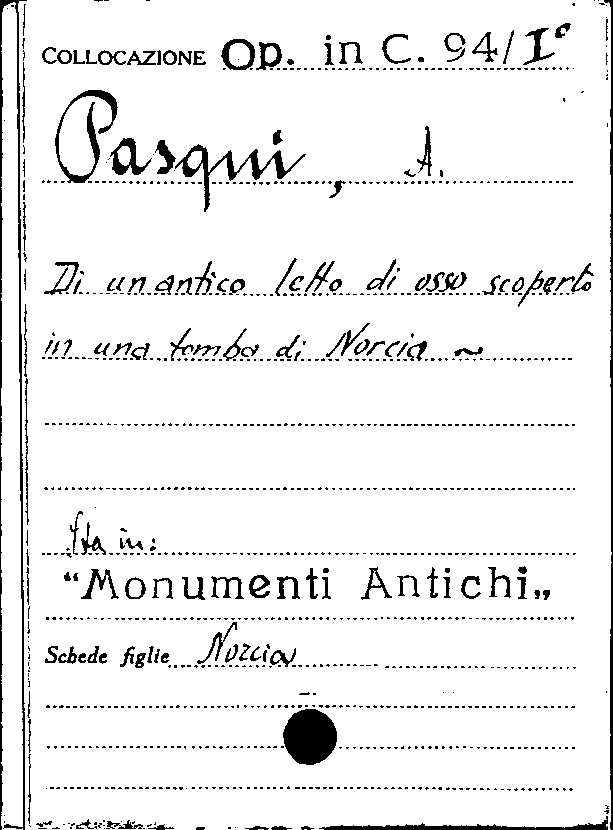 COLLOCAZIONE Op. in C. 94/I°
Pasqui, A.
Di un antico letto di osso scoperto
in una tomba di Norcia ~
Sta in:
"Monumenti Antichi„
Schede figlie Norcia